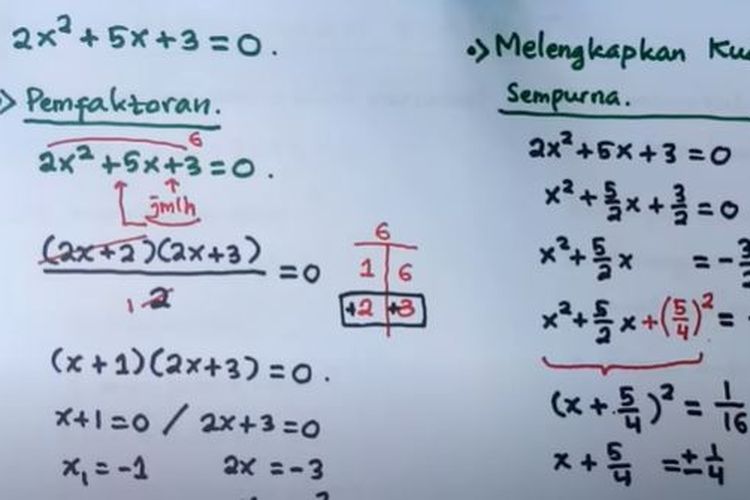 2x² + 5x + 3 = 0.
Pemfaktoran.
6
2x² + 5x + 3 = 0.
jmlh
(2x + 2)(2x + 3)
= 0
1 2
6
1 6
+2 +3
(x + 1)(2x + 3) = 0.
x + 1 = 0 / 2x + 3 = 0
x₁ = -1 2x = -3
•> Melengkapkan
Sempurna.
2x² + 5x + 3 = 0
x² + 5/2 x + 3/2 = 0
x² + 5/2 x = -
x² + 5/2 x + (5/4)² =
(x + 5/4)² = 1/16
x + 5/4 = ± 1/4